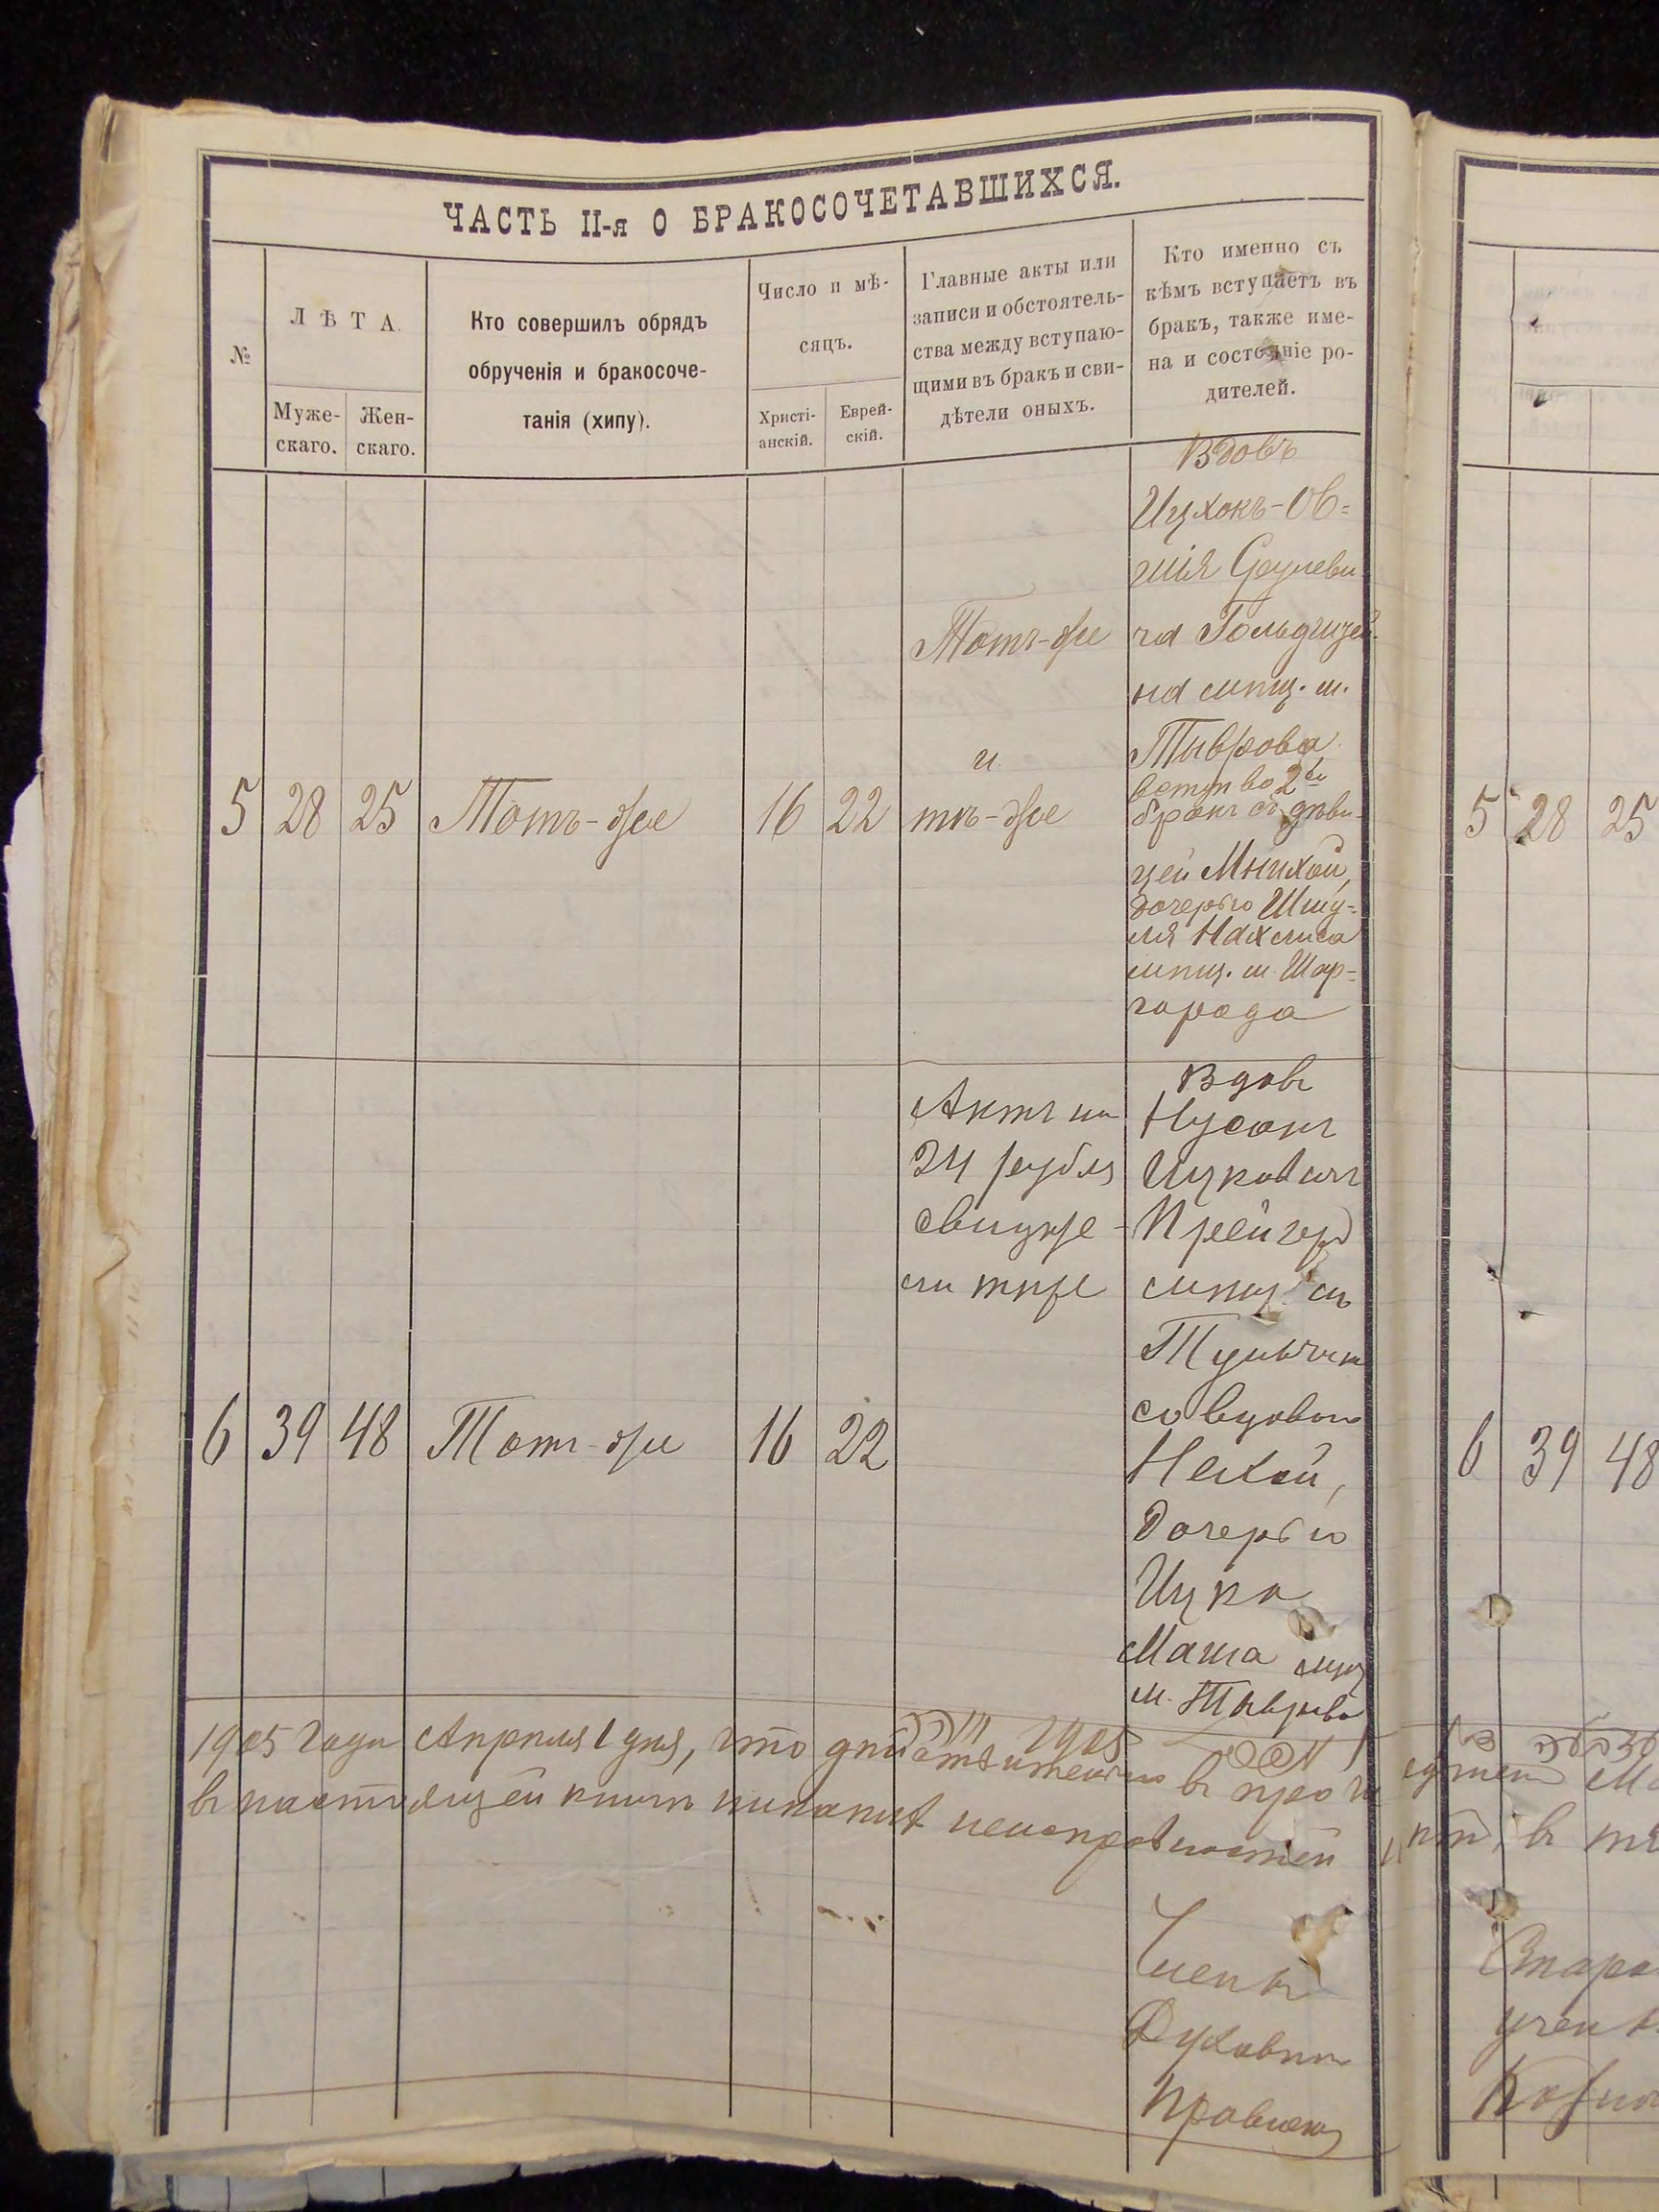 ЧАСТЬ II-я О БРАКОСОЧЕТАВШИХСЯ.
№
ЛѢТА.
Муже-
скаго.
Жен-
скаго.
Кто совершилъ обрядъ
обрученія и бракосоче-
танія (хипу).
Число и мѣ-
сяцъ.
Христі-
анскій.
Еврей-
скій.
Главные акты или
записи и обстоятель-
ства между вступаю-
щими въ бракъ и сви-
дѣтели оныхъ.
Кто именно съ
кѣмъ вступаетъ въ
бракъ, также име-
на и состояніе ро-
дителей.
5 28 25 Тотъ-же 16 22
Тотъ-же
и
тѣ-же
Вдовъ
Ицхокъ-Ов-
шія Срулеви
ча Гольдштей-
на мѣщ. м.
Тыврова
вступ во 2й
бракъ съ дѣви-
цей Мнихой,
дочерью Шму-
ля Нахмиса
мѣщ. м. Шар-
города
6 39 48 Тотъ-же 16 22
Актъ на
24 рубля
свидѣте-
ли тѣже
Вдовъ
Нусонъ
Ицковичъ
Крейгер
мѣщ. съ
Тульчин
со вдовою
Нехой,
дочерью
Ицка
Маша мѣщ
м. Тыврова
1905 года Апрѣля 1 дня, что дѣйствительно въ про
въ настоящей книгѣ никакихъ неисправностей
Членъ
Духовнаго
Правленія
5 28 25
6 39 48